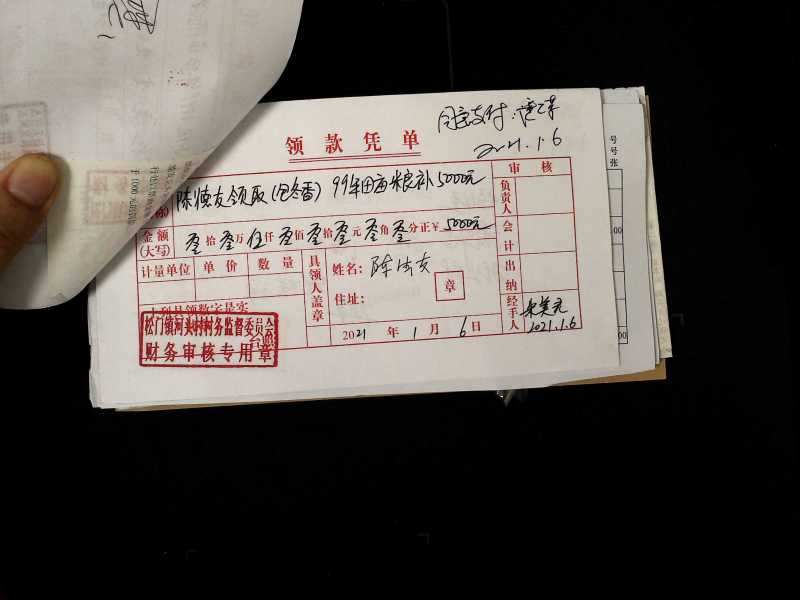 同意支付
2021.1.6
领款凭单
审核
陈德友领取(包冬香) 99年田亩粮补5000元
负责人
金额(大写) 零拾零万伍仟零佰零拾零元零角零分正¥5000元
会计
计量单位 单价 数量
具领人盖章
姓名:陈德友
住址:
章
出纳
上列具领数字是实
松门镇河头村村务监督委员会
财务审核专用章
2021年1月6日
经手人
2021.1.6
号
号
张
00
00